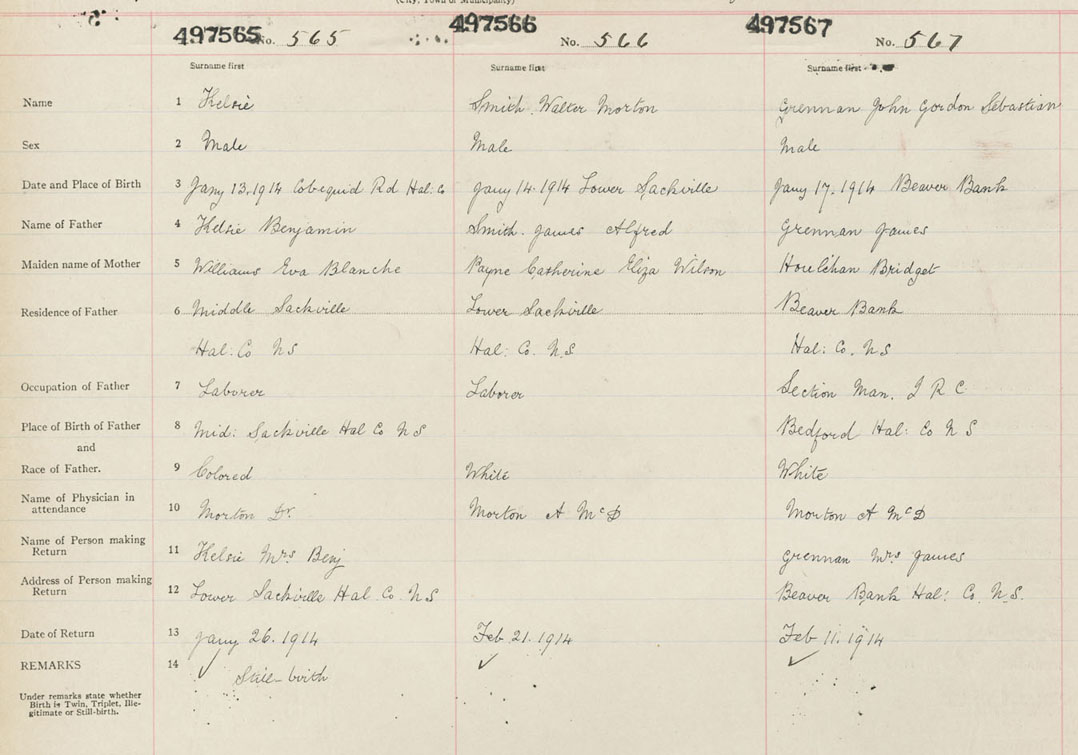 (City, Town or Municipality)
497565 No. 565 497566 No. 566 497567 No. 567
Surname first Surname first Surname first
Name 1 Kelsie Smith. Walter Morton Grennan John Gordon Sebastian
Sex 2 Male Male Male
Date and Place of Birth 3 Jany 13, 1914 Cobequid Rd Hal: Co Jany 14. 1914 Lower Sackville Jany 17. 1914 Beaver Bank
Name of Father 4 Kelsie Benjamin Smith. James Alfred Grennan James
Maiden name of Mother 5 Williams Eva Blanche Payne Catherine Eliza Wilson Houlihan Bridget
Residence of Father 6 Middle Sackville Lower Sackville Beaver Bank
Hal: Co N S Hal: Co. N.S Hal: Co. N S
Occupation of Father 7 Laborer Laborer Section Man. I R C
Place of Birth of Father 8 Mid: Sackville Hal Co N S Bedford Hal: Co N S
and
Race of Father. 9 Colored White White
Name of Physician in
attendance 10 Morton Dr. Morton A McD Morton A McD
Name of Person making
Return 11 Kelsie Mrs Benj Grennan Mrs James
Address of Person making
Return 12 Lower Sackville Hal Co. N S Beaver Bank Hal: Co. N.S.
Date of Return 13 Jany 26. 1914 Feb 21. 1914 Feb 11. 1914
REMARKS 14 ✓ Still-birth ✓ ✓
Under remarks state whether
Birth is Twin, Triplet, Ille-
gitimate or Still-birth.